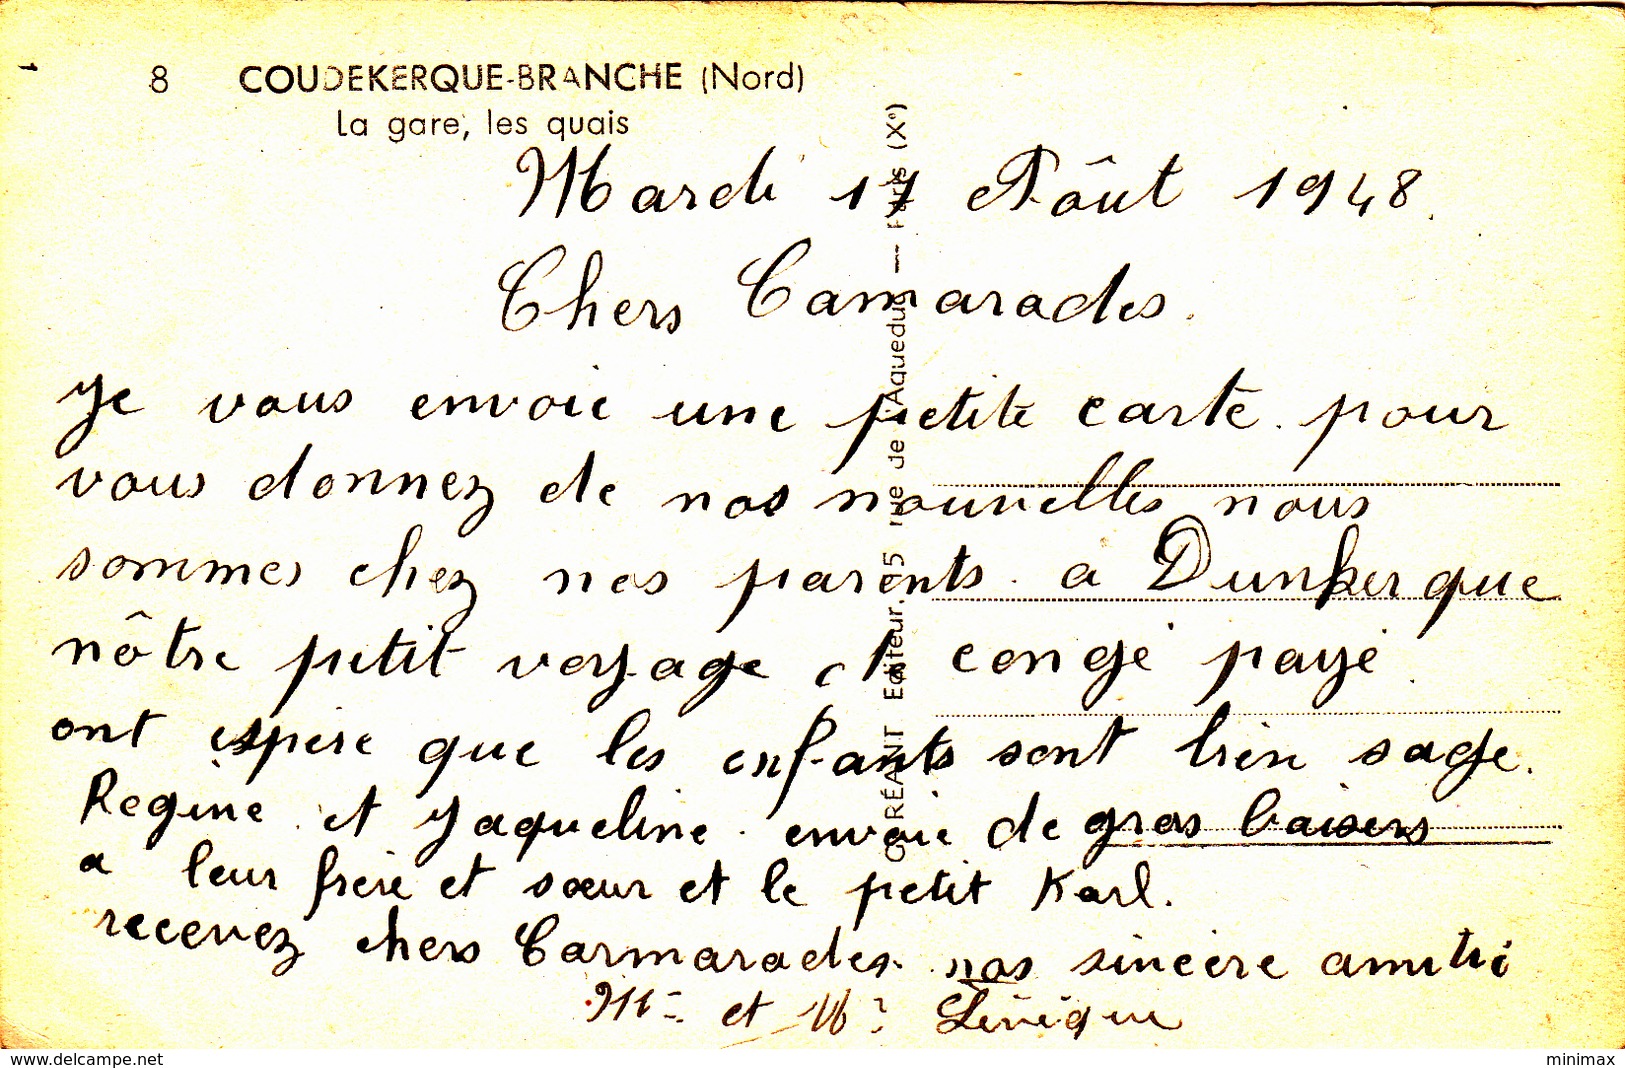 8 COUDEKERQUE-BRANCHE (Nord)
La gare, les quais
Mardi 17 Aôut 1948.
Chers Camarades.
Je vous envoie une petite carte. pour
vous donnez de nos nouvelles nous
sommes chez nos parents. a Dunkerque
nôtre petit voyage et congé payé.
ont espère que les enfants sont bien sage.
Regine et Jaqueline. envoie de gros baisers
a leur frère et sœur et le petit Karl.
recevez chers Carmarades. nos sincère amitié
Mr et Me Lévèque
CRÉANT Editeur, 5 rue de l'Aqueduc — Paris (Xe)
www.delcampe.net
minimax